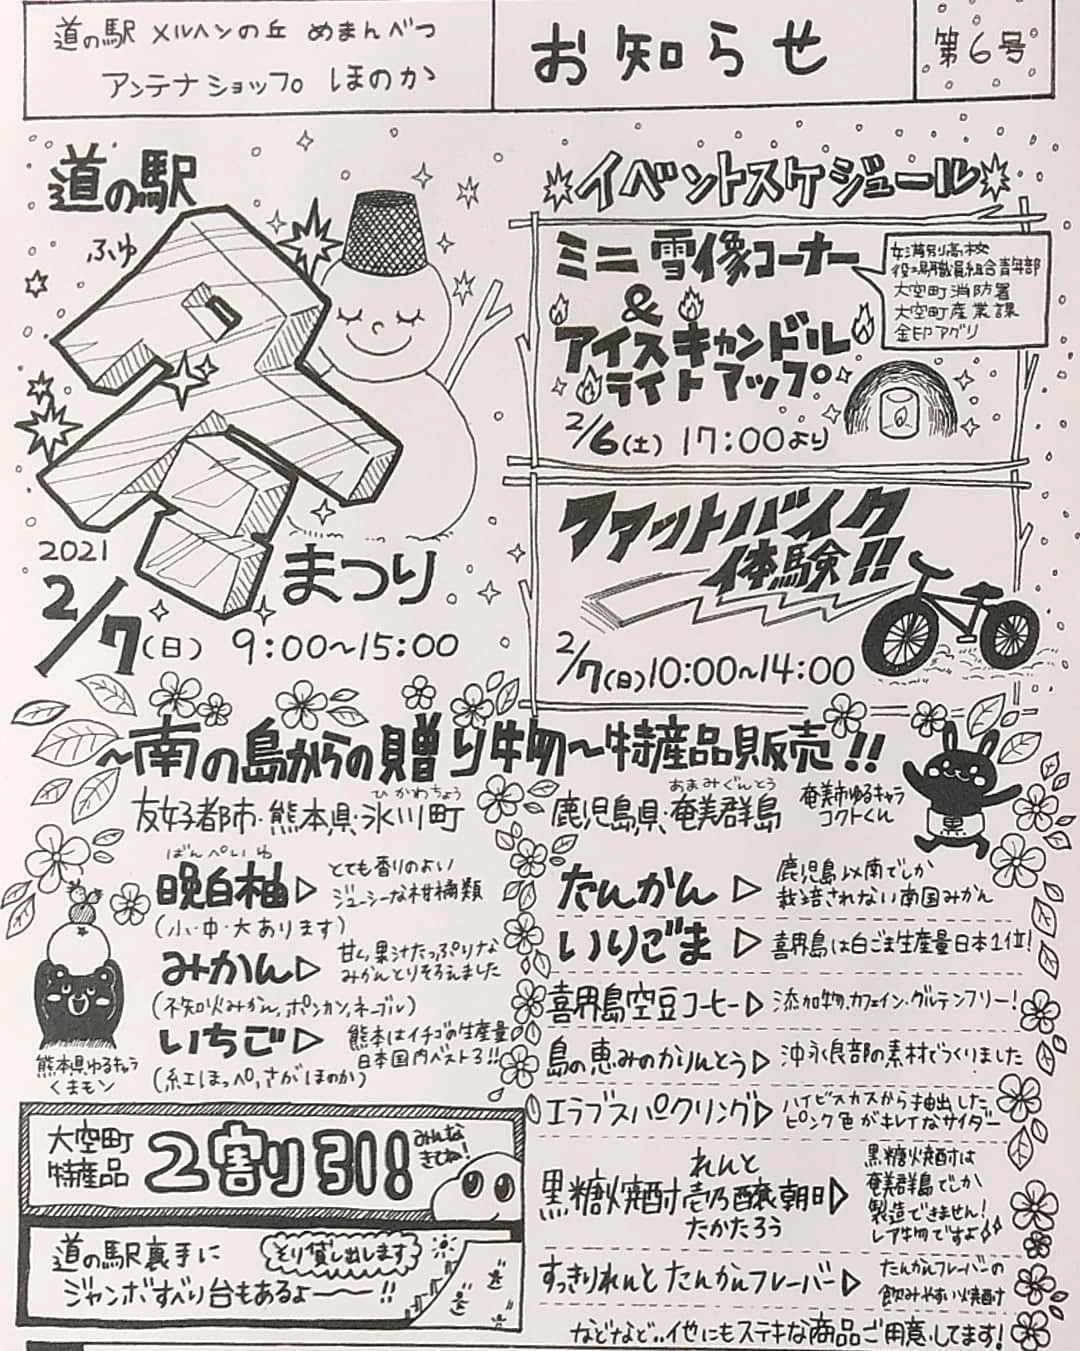 道の駅 メルヘンの丘 めまんべつ
アンテナショップ ほのか
お知らせ
第6号
道の駅
ふゆ
冬
まつり
2021
2/7(日) 9:00~15:00
イベントスケジュール
ミニ雪像コーナー
&
アイスキャンドル
ライトアップ
2/6(土) 17:00より
女満別高校
役場職員組合青年部
大空町消防署
大空町産業課
金印アグリ
ファットバイク
体験!!
2/7(日)10:00~14:00
~南の島からの贈り物~特産品販売!!
ひかわちょう
友好都市・熊本県・氷川町
ばんぺいゆ
晩白柚▷
とても香りのよい
ジューシーな柑橘類
(小・中・大あります)
みかん▷
甘く、果汁たっぷりな
みかんとりそろえました
(不知火みかん、ポンカン、ネーブル)
いちご▷
熊本はイチゴの生産量
日本国内ベスト3!!
(紅ほっぺ、さがほのか)
熊本県ゆるキャラ
くまモン
あまみぐんとう
鹿児島県・奄美群島
奄美市ゆるキャラ
コクトくん
黒
たんかん▷
鹿児島以南でしか
栽培されない南国みかん
いりごま▷
喜界島は白ごま生産量日本1位!
喜界島空豆コーヒー▷
添加物、カフェイン・グルテンフリー!
島の恵みのかりんとう▷
沖永良部の素材でつくりました
エラブスパークリング▷
ハイビスカスから抽出した
ピンク色がキレイなサイダー
れんと
黒糖焼酎壱乃醸朝日▷
たかたろう
黒糖焼酎は
奄美群島でしか
製造できません!
レア物ですよ
すっきりれんと たんかんフレーバー▷
たんかんフレーバーの
飲みやすい焼酎
などなど..他にもステキな商品ご用意してます!
大空町
特産品
2割り引!
みんな
きてね!
道の駅裏手に
そり貸し出します
ジャンボすべり台もあるよーー!!